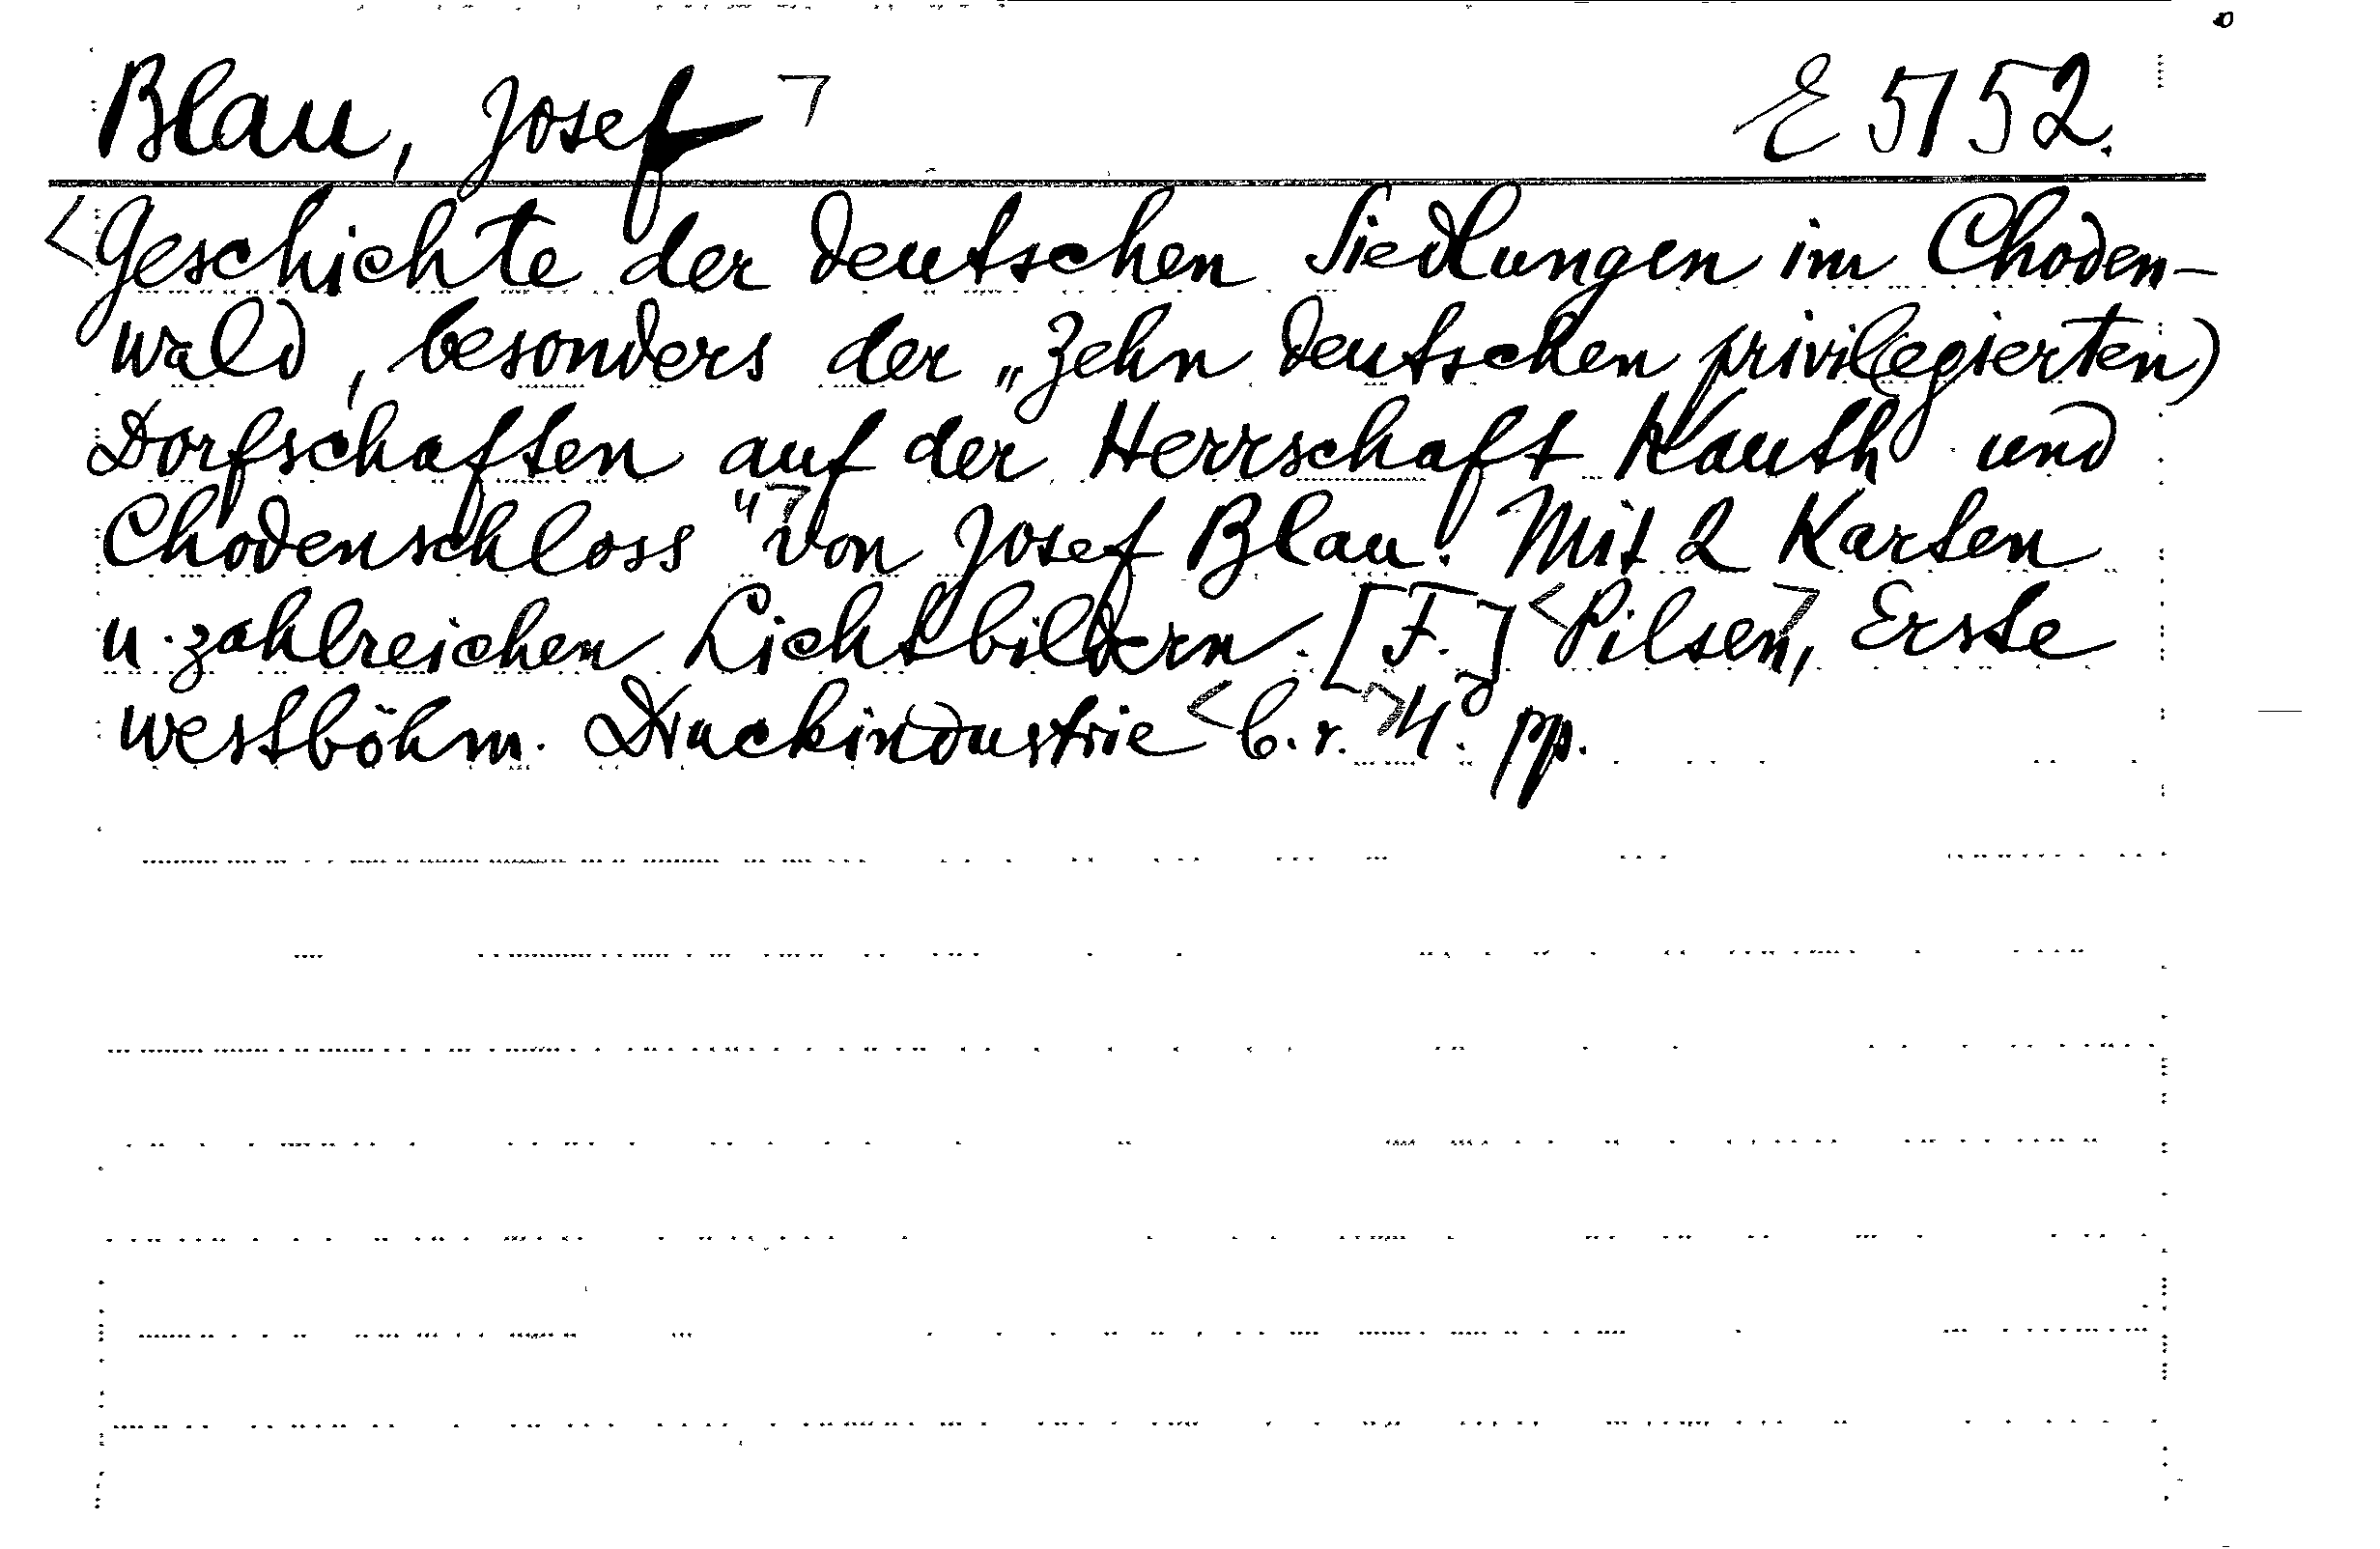 Blau, Josef E 5152.
Geschichte der deutschen Siedlungen im Choden-
wald, besonders der „Zehn deutschen privil(egierten)
Dorfschaften auf der Herrschaft Kauth und
Chodenschloss" von Josef Blau. Mit 2 Karten
u. zahlreichen Lichtbildern. [F.] Pilsen, Erste
westböhm. Druckindustrie b.r. 4° pp.